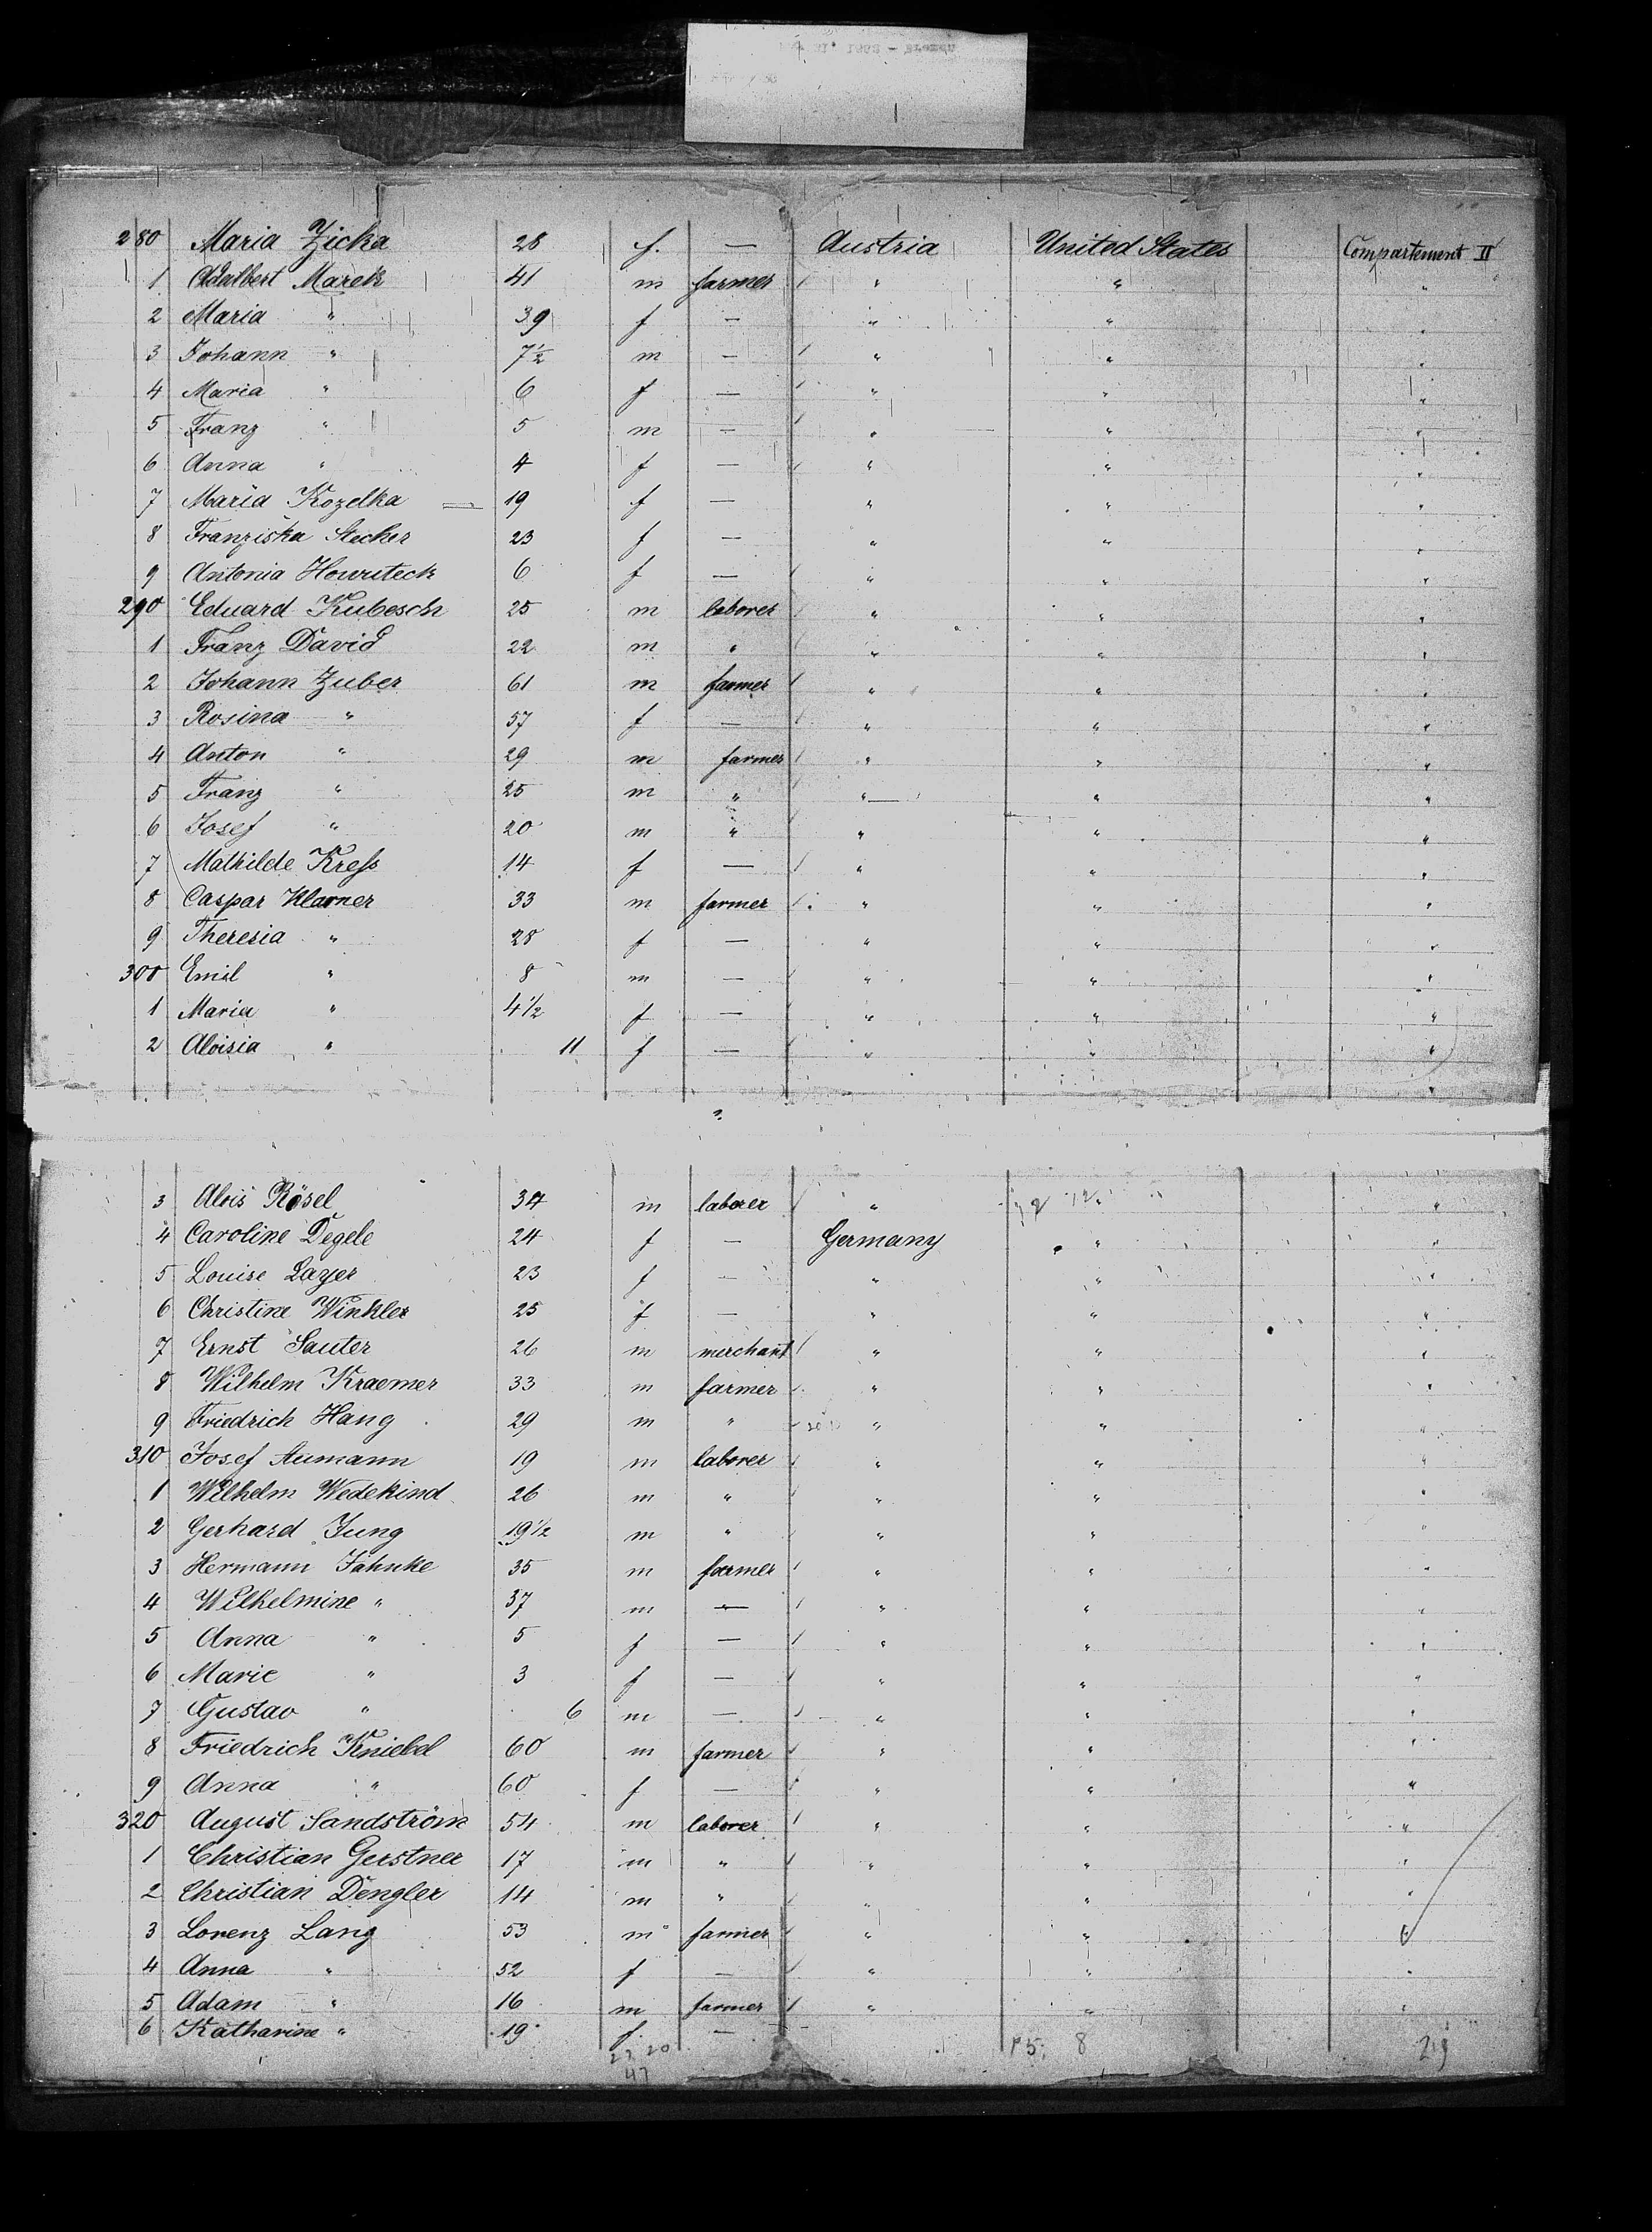 280 Maria Zicka 28 f. — Austria United States Compartement II
1 Adalbert Marek 41 m farmer " " "
2 Maria " 39 f — " " "
3 Johann " 7½ m — " " "
4 Maria " 6 f — " " "
5 Franz " 5 m — " " "
6 Anna " 4 f — " " "
7 Maria Kozelka 19 f — " " "
8 Franziska Stecher 23 f — " " "
9 Antonia Howriteck 6 f — " " "
290 Eduard Kubesch 25 m laborer " " "
1 Franz David 22 m " " " "
2 Johann Zuber 61 m farmer " " "
3 Rosina " 57 f — " " "
4 Anton " 29 m farmer " " "
5 Franz " 25 m " " " "
6 Josef " 20 m " " " "
7 Mathilde Kress 14 f — " " "
8 Caspar Klarner 33 m farmer " " "
9 Theresia " 28 f — " " "
300 Emil " 8 m — " " "
1 Maria " 4½ f — " " "
2 Aloisia " 11 f — " " "
3 Alois Rösel 34 m laborer " " "
4 Caroline Degele 24 f — Germany " "
5 Louise Layer 23 f — " " "
6 Christine Winkler 25 f — " " "
7 Ernst Sauter 26 m merchant " " "
8 Wilhelm Kraemer 33 m farmer " " "
9 Friedrich Hang 29 m " " " "
310 Josef Aumann 19 m laborer " " "
1 Wilhelm Wedekind 26 m " " " "
2 Gerhard Jung 19½ m " " " "
3 Hermann Jahnke 35 m farmer " " "
4 Wilhelmine " 37 m — " " "
5 Anna " 5 f — " " "
6 Marie " 3 f — " " "
7 Gustav " 6 m — " " "
8 Friedrich Kniebel 60 m farmer " " "
9 Anna " 60 f — " " "
320 August Sandström 54 m laborer " " "
1 Christian Gerstner 17 m " " " "
2 Christian Dengler 14 m " " " "
3 Lorenz Lang 53 m farmer " " "
4 Anna " 52 f — " " "
5 Adam " 16 m farmer " " "
6 Katharine " 19 f. —
27 20 8 29
47